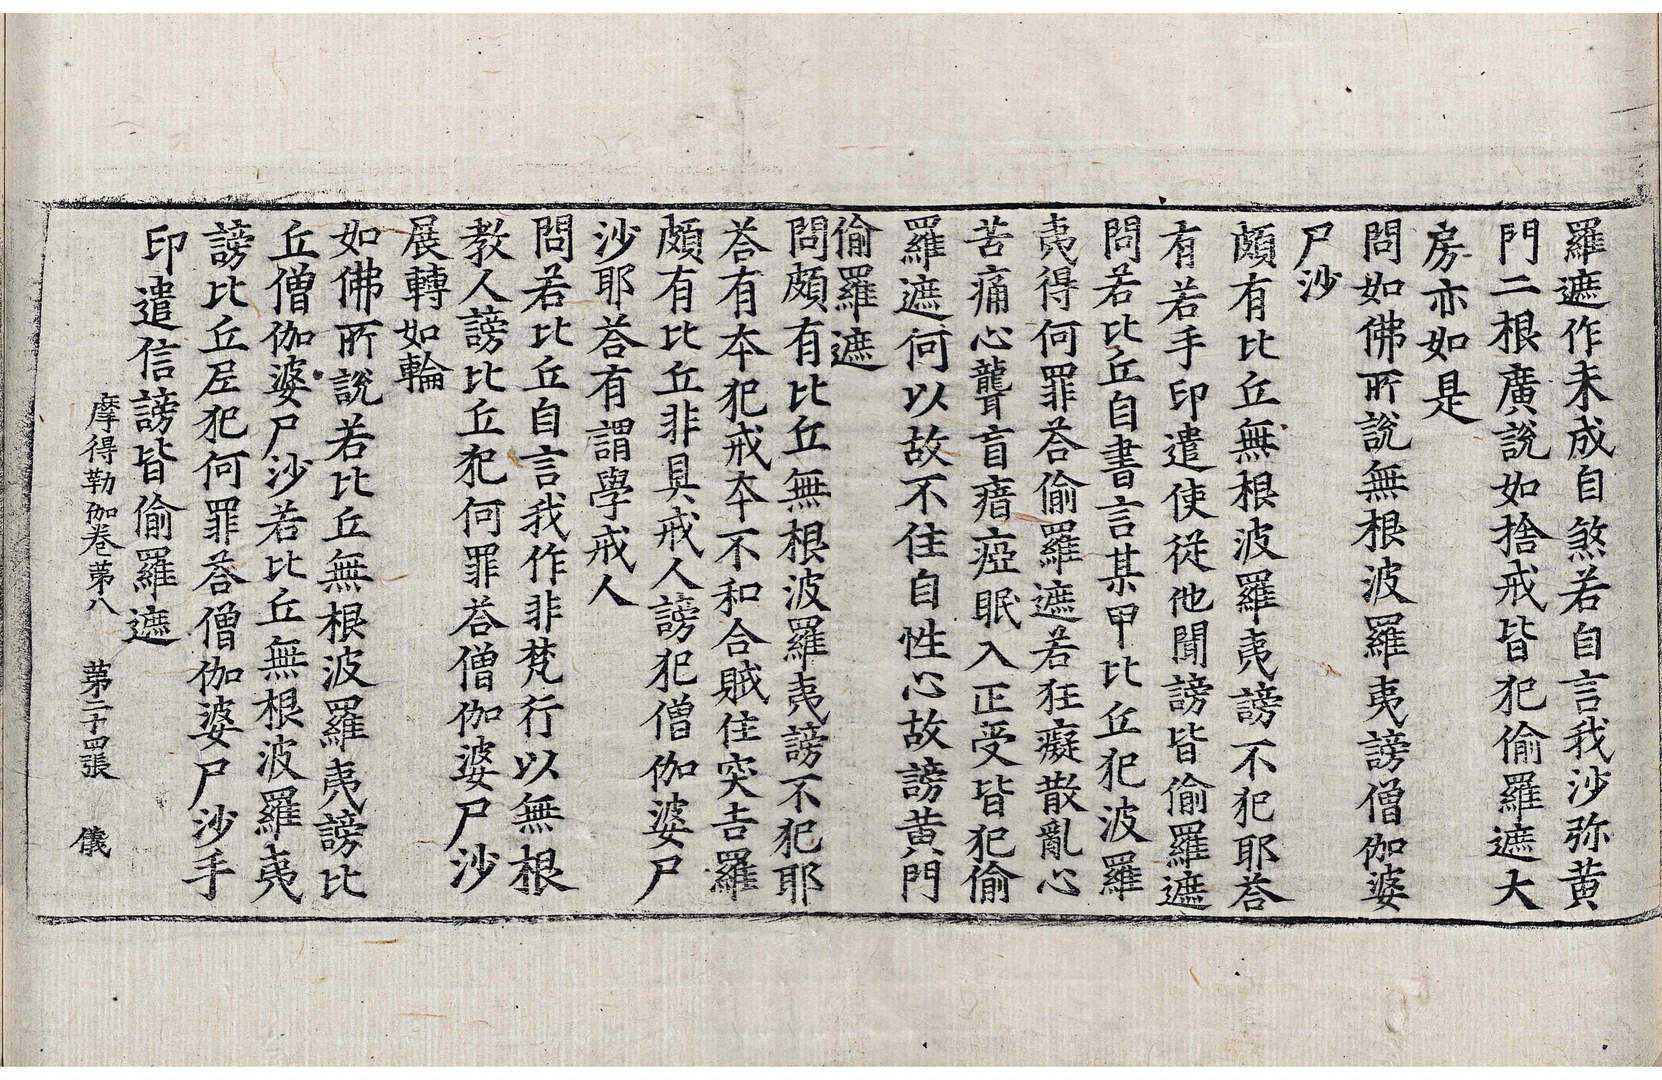 羅遮作未成自煞若自言我沙弥黄
門二根廣說如捨戒皆犯偷羅遮大
房亦如是
問如佛所說無根波羅夷謗僧伽婆
尸沙
頗有比丘無根波羅夷謗不犯耶荅
有若手印遣使從他聞謗皆偷羅遮
問若比丘自書言某甲比丘犯波羅
夷得何罪荅偷羅遮若狂癡散亂心
苦痛心聾盲瘖瘂眠入正受皆犯偷
羅遮何以故不住自性心故謗黄門
偷羅遮
問頗有比丘無根波羅夷謗不犯耶
荅有本犯戒本不和合賊住突吉羅
頗有比丘非具戒人謗犯僧伽婆尸
沙耶荅有謂學戒人
問若比丘自言我作非梵行以無根
教人謗比丘犯何罪荅僧伽婆尸沙
展轉如輪
如佛所說若比丘無根波羅夷謗比
丘僧伽婆尸沙若比丘無根波羅夷
謗比丘尼犯何罪荅僧伽婆尸沙手
印遣信謗皆偷羅遮
摩得勒伽卷第八 第二十四張 儀